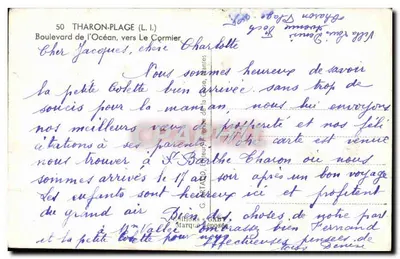 50 THARON-PLAGE (L. I.)
Boulevard de l'Océan, vers Le Cormier
Villa
Tharon Plage
Cher Jacques, chère Charlotte
Nous sommes heureux de savoir
la petite Colette bien arrivée sans trop de
soucis pour la maman, nous lui envoyons
nos meilleurs vœux de prospérité et nos féli
citations à ses parents carte est venue
nous trouver à St Barthe Tharon où nous
sommes arrivés le 17 au soir après un bon voyage
Les enfants sont heureux ici et profitent
du grand air Bien des choses de notre part
à Mme Vallée embrassez bien Fernand
et la petite Colette pour nous
Affectueuses pensées de
tous Denise